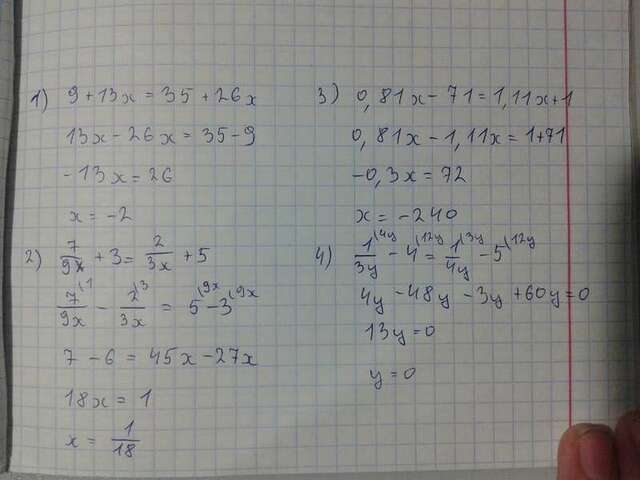 1) 9 + 13x = 35 + 26x
13x - 26x = 35 - 9
-13x = 26
x = -2
2) 7/9x + 3 = 2/3x + 5
7/9x (1 - 2/3x (3 = 5 (9x - 3 (9x
7 - 6 = 45x - 27x
18x = 1
x = 1/18
3) 0,81x - 71 = 1,11x + 1
0,81x - 1,11x = 1 + 71
-0,3x = 72
x = -240
4) 1/3y (4y - 4 (12y = 1/4y (3y - 5 (12y
4y - 48y - 3y + 60y = 0
13y = 0
y = 0